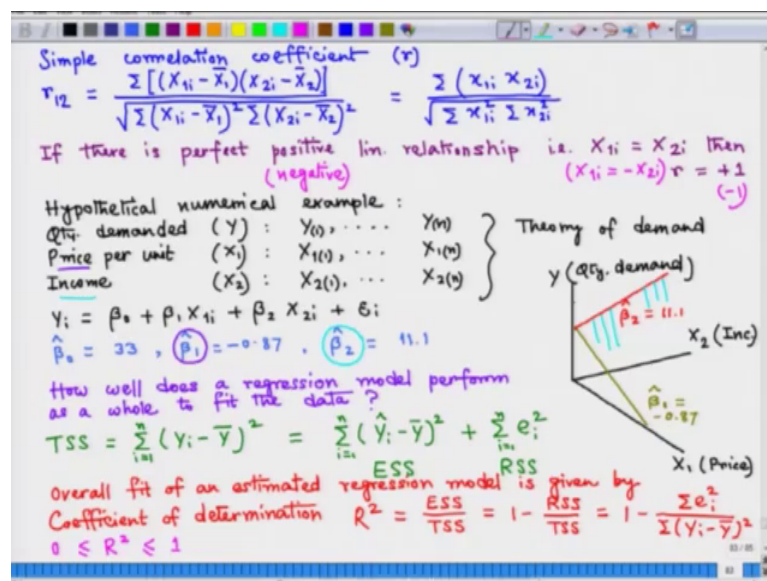 Simple correlation coefficient (r)
r₁₂ = Σ[(X₁ᵢ − X̄₁)(X₂ᵢ − X̄₂)] / √(Σ(X₁ᵢ − X̄₁)² Σ(X₂ᵢ − X̄₂)²) = Σ(x₁ᵢ x₂ᵢ) / √(Σx₁ᵢ² Σx₂ᵢ²)
If there is perfect positive lin. relationship i.e. X₁ᵢ = X₂ᵢ then
(negative) (X₁ᵢ = −X₂ᵢ) r = +1
(−1)
Hypothetical numerical example :
Qty. demanded (Y) : Y(1), .... Y(n)
Price per unit (X₁) : X₁(1), ... X₁(n)
Income (X₂) : X₂(1), ... X₂(n)
Theory of demand
Y (Qty. demand)
β̂₂ = 11.1
X₂ (Inc)
β̂₁ =
−0.87
X₁ (Price)
Yᵢ = β₀ + β₁ X₁ᵢ + β₂ X₂ᵢ + εᵢ
β̂₀ = 33 , β̂₁ = −0.87 , β̂₂ = 11.1
How well does a regression model perform
as a whole to fit the data ?
TSS = Σᵢ₌₁ⁿ (Yᵢ − Ȳ)² = Σᵢ₌₁ⁿ (Ŷᵢ − Ȳ)² + Σᵢ₌₁ⁿ eᵢ²
ESS RSS
Overall fit of an estimated regression model is given by
Coefficient of determination R² = ESS/TSS = 1 − RSS/TSS = 1 − Σeᵢ²/Σ(Yᵢ − Ȳ)²
0 ≤ R² ≤ 1
83/85
83